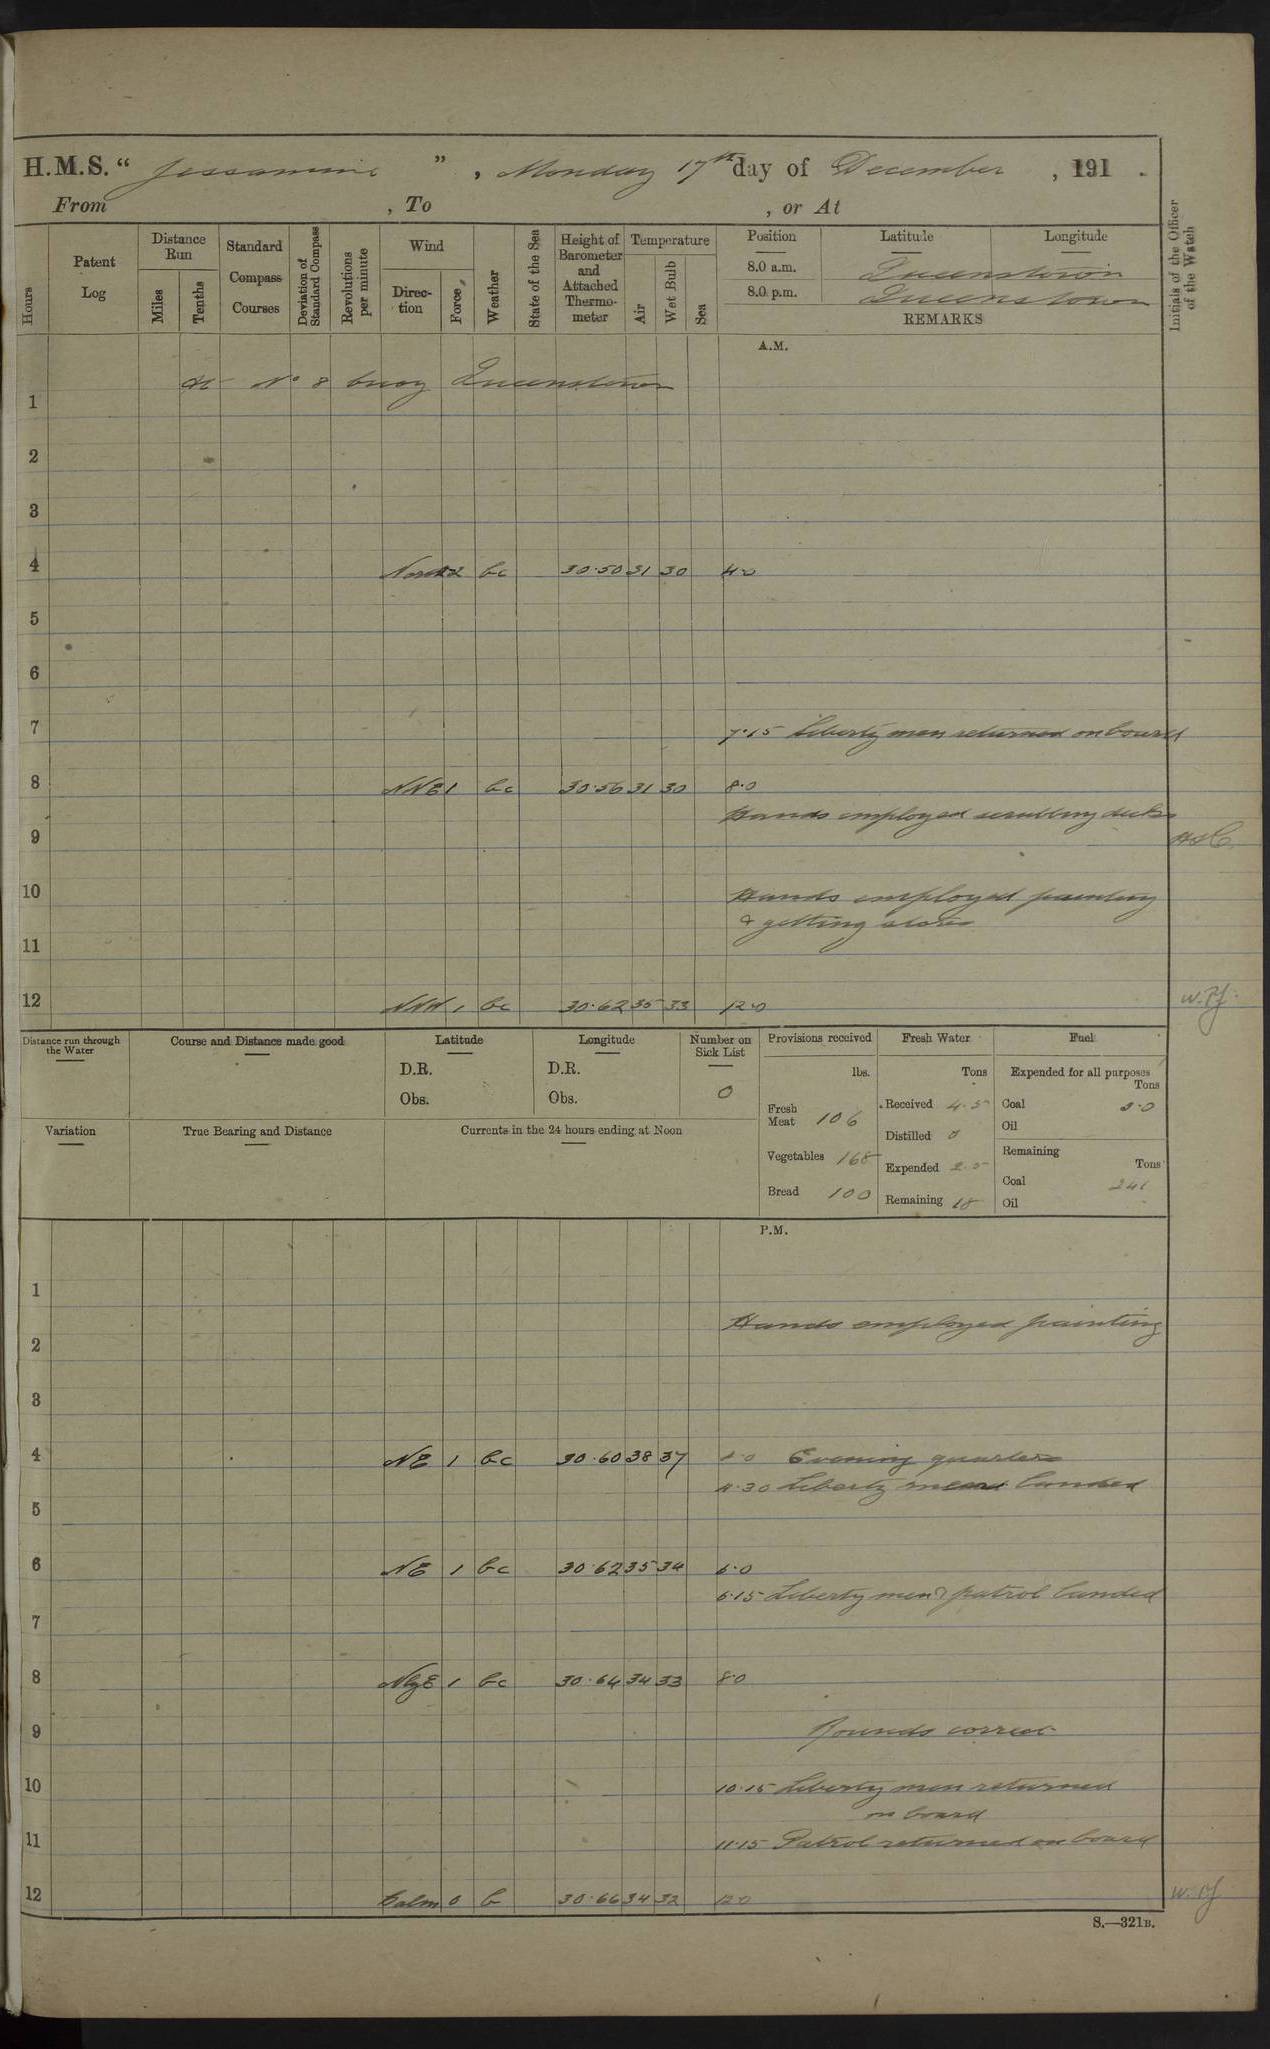 H.M.S. “ Jessamine ” , Monday 17th day of December , 191 .
From , To , or At
Hours
Patent Log
Distance Run
Miles
Tenths
Standard Compass Courses
Deviation of Standard Compass
Revolutions per minute
Wind
Direc-tion
Force
Weather
State of the Sea
Height of Barometer and Attached Thermo-meter
Temperature
Air
Wet Bulb
Sea
Position Latitude Longitude
8.0 a.m. Queenstown
8.0 p.m. Queenstown
REMARKS
Initials of the Officer of the Watch
A.M.
At No 8 buoy Queenstown
1
2
3
4 North 2 bc 30.50 31 30 4.0
5
6
7 7.15 Liberty men returned on board
8 NNE 1 bc 30.56 31 30 8.0
Hands employed scrubbing decks
9
10 Hands employed painting
& getting stores
11
12 NNW 1 bc 30.62 35 33 12.0
Distance run through the Water
Course and Distance made good
Latitude
D.R.
Obs.
Longitude
D.R.
Obs.
Number on Sick List
0
Provisions received
lbs.
Fresh Meat 106
Vegetables 168
Bread 100
Fresh Water
Tons
Received 4.5
Distilled 0
Expended 2.5
Remaining 18
Fuel
Expended for all purposes
Tons
Coal
Oil
Remaining
Tons
Coal 241
Oil
Variation
True Bearing and Distance
Currents in the 24 hours ending at Noon
P.M.
1
Hands employed painting
2
3
4 NE 1 bc 30.60 38 37 4.0 Evening quarters
4.30 Liberty men landed
5
6 NE 1 bc 30.62 35 34 6.0
6.15 Liberty men & patrol landed
7
8 NbyE 1 bc 30.64 34 33 8.0
9 Rounds correct
10 10.15 Liberty men returned
on board
11 11.15 Patrol returned on board
12 Calm 0 b 30.66 34 32 12.0
S.—321B.